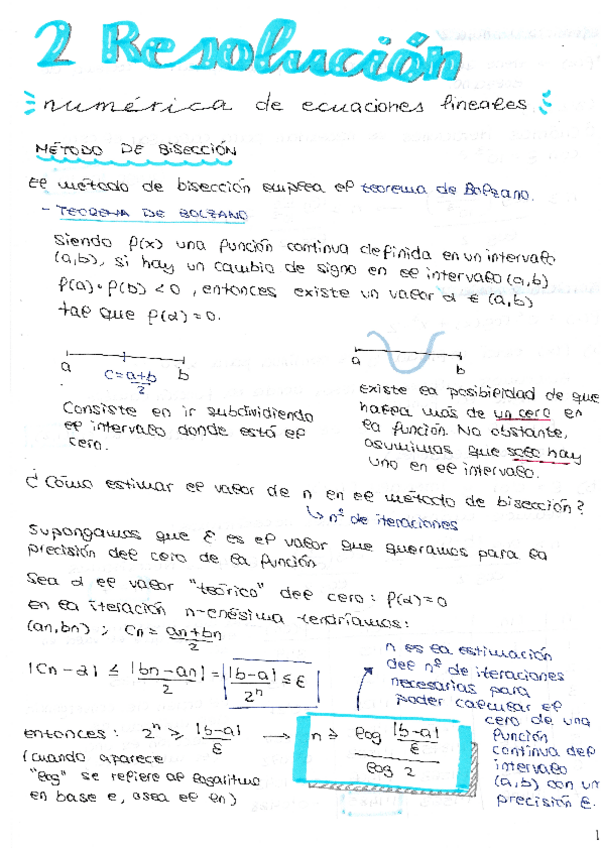 2 Resolución
numérica de ecuaciones lineales
MÉTODO DE BISECCIÓN
El método de bisección emplea el teorema de Bolzano.
- TEOREMA DE BOLZANO
Siendo f(x) una función continua definida en un intervalo
(a,b), si hay un cambio de signo en el intervalo (a,b)
f(a)·f(b) < 0, entonces existe un valor α ∈ (a,b)
tal que f(α)=0.
a c = a+b/2 b
Consiste en ir subdividiendo
el intervalo donde está el
cero.
a b
existe la posibilidad de que
halla más de un cero en
la función. No obstante,
asumimos que solo hay
uno en el intervalo.
¿Cómo estimar el valor de n en el método de bisección?
↳ nº de iteraciones
Supongamos que ε es el valor que queramos para la
precisión del cero de la función
Sea α el valor "teórico" del cero: f(α)=0
en la iteración n-enésima tendríamos:
(an,bn) ; Cn = an+bn/2
|Cn - α| ≤ |bn-an|/2 = |b-a|/2ⁿ ≤ ε
entonces: 2ⁿ ≥ |b-a|/ε → n ≥ log |b-a|/ε / log 2
(cuando aparece
"log" se refiere al logaritmo
en base e, o sea el ln)
n es la estimación
del nº de iteraciones
necesarias para
poder calcular el
cero de una
función
continua del
intervalo
(a,b) con un
precisión ε.
1